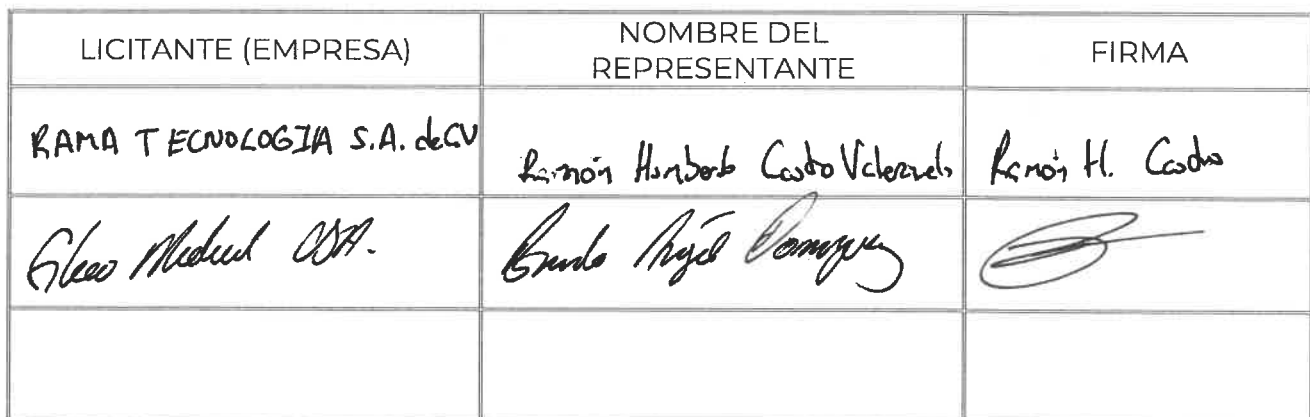 LICITANTE (EMPRESA)
NOMBRE DEL
REPRESENTANTE
FIRMA
RAMA TECNOLOGIA S.A. de CV
Ramón Humberto Castro Valenzuela
Ramón H. Castro
Medical USA.
Angel Dominguez